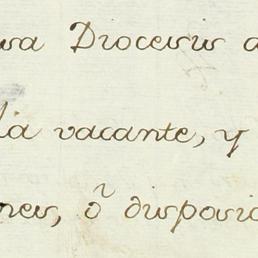 sua Diocesis a
la vacante, y
nes, ō disposic